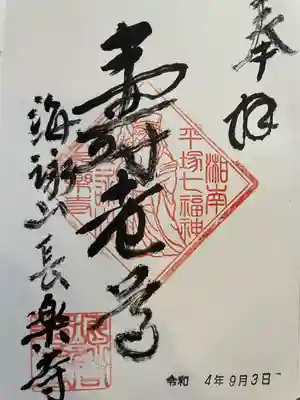 奉拝
湘南
平塚七福神
壽老尊
海潮山長楽寺
令和 4年9月3日